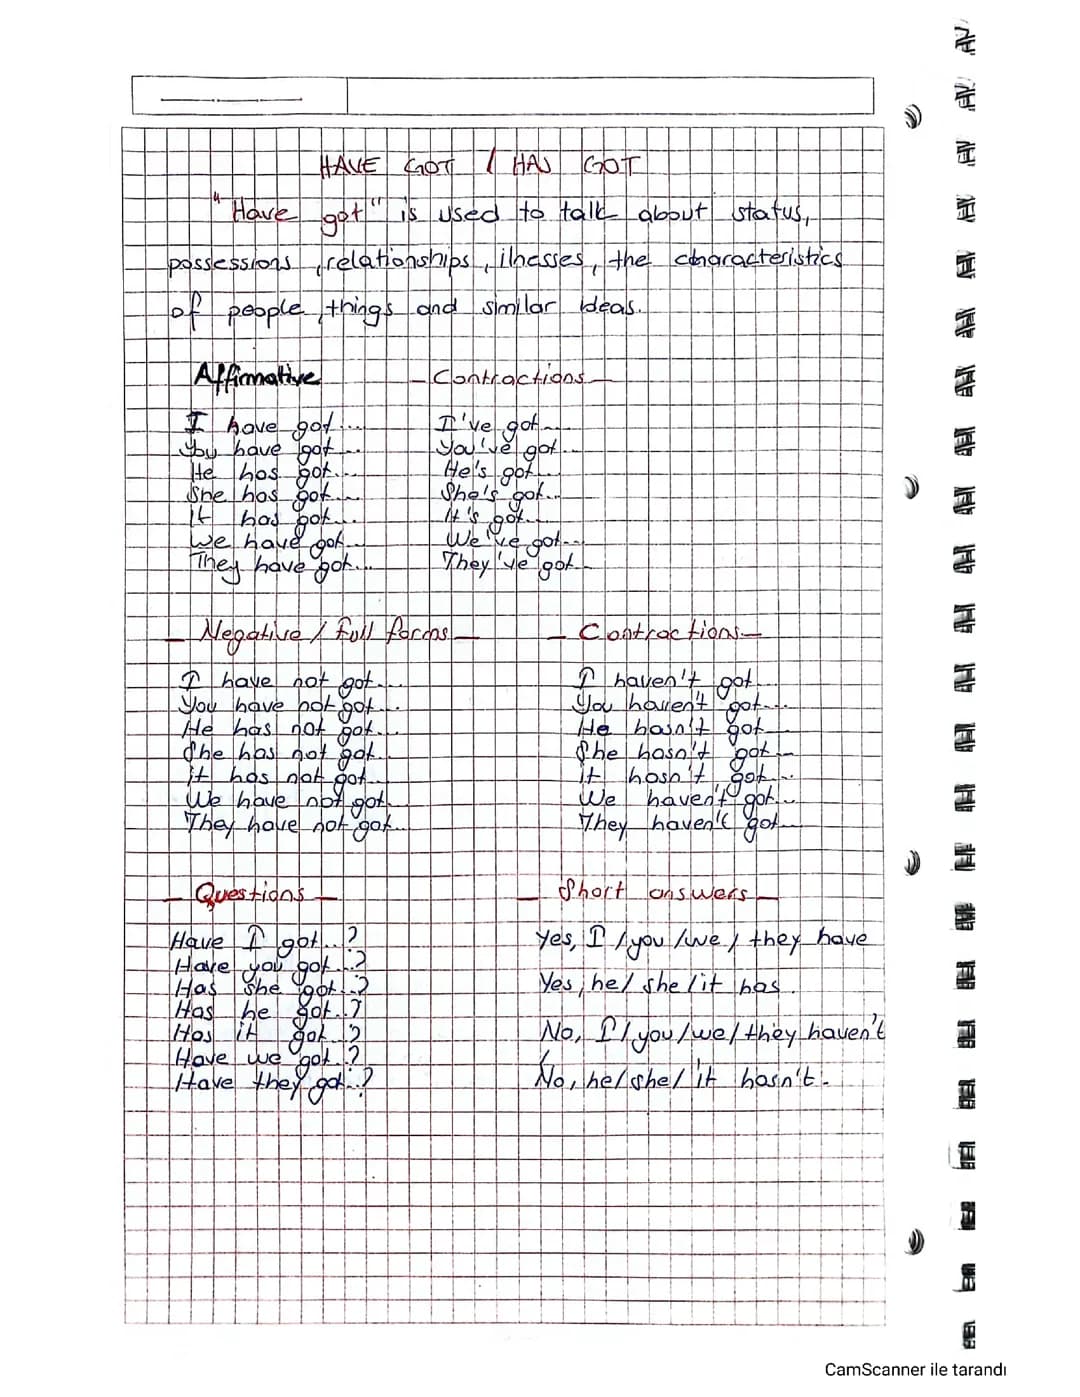 HAVE GOT / HAS GOT
"Have got" is used to talk about status,
possessions, relationships, ilnesses, the characteristics
of people, things and similar ideas.
Affirmative
I have got...
You have got...
He has got...
She has got...
It has got...
We have got...
They have got...
- Contractions -
I've got...
You've got...
He's got...
She's got...
It's got...
We've got...
They've got...
- Negative / Full forms -
I have not got...
You have not got...
He has not got...
She has not got...
it has not got...
We have not got...
They have not got...
- Contractions -
I haven't got...
You haven't got...
He hasn't got...
She hasn't got...
it hasn't got...
We haven't got...
They haven't got...
- Questions -
Have I got...?
Have you got...?
Has she got...?
Has he got...?
Has it got...?
Have we got...?
Have they got...?
- Short answers -
Yes, I / you / we / they have
Yes, he / she / it has.
No, I / you / we / they haven't
No, he / she / it hasn't.
CamScanner ile tarandı